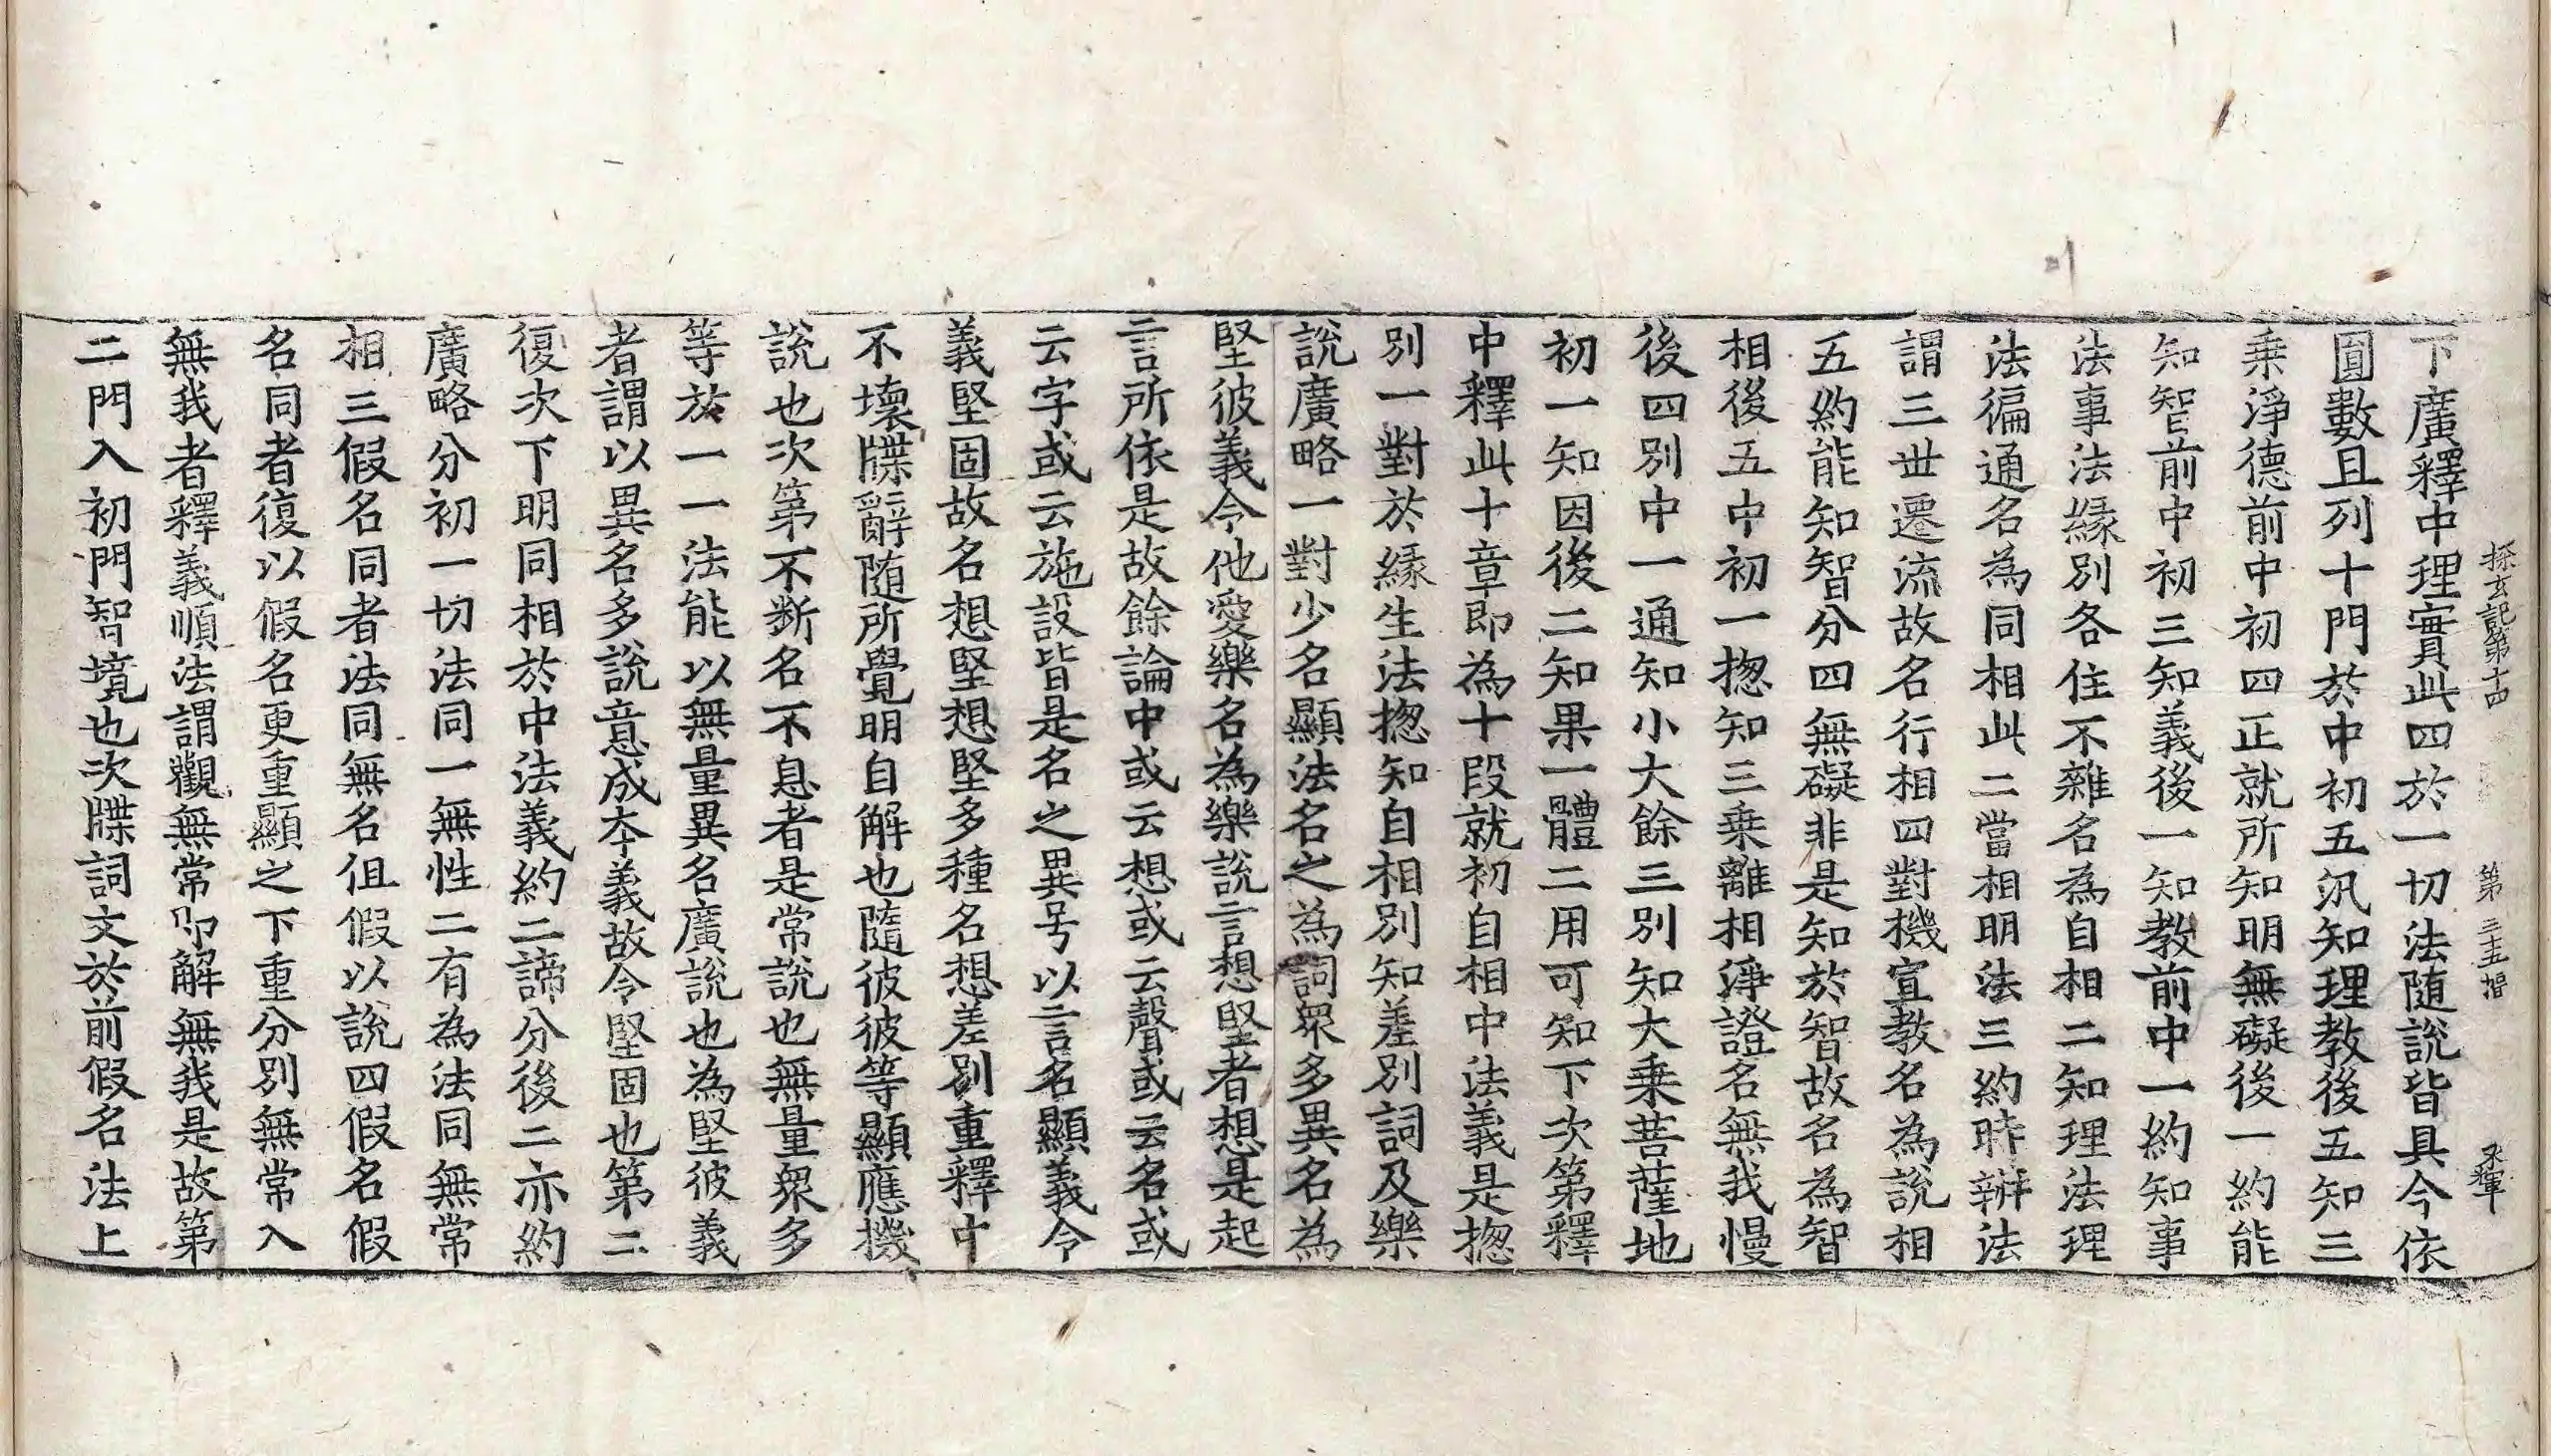 探玄記第十四 第三十五楷 承暉
下廣釋中理實此四於一切法随說皆具今依
圓數且列十門於中初五汎知理教後五知三
乗淨德前中初四正就所知明無礙後一約能
知智前中初三知義後一知教前中一約知事
法事法縁別各住不雜名為自相二知理法理
法徧通名為同相此二當相明法三約時辨法
謂三丗遷流故名行相四對機宣教名為說相
五約能知智分四無礙非是知於智故名為智
相後五中初一揔知三乗離相淨證名無我慢
後四別中一通知小大餘三別知大乗菩薩地
初一知因後二知果一體二用可知下次第釋
中釋此十章即為十段就初自相中法義是揔
別一對於縁生法揔知自相別知差別詞及樂
說廣略一對少名顯法名之為詞衆多異名為
堅彼義今他愛樂名為樂說言想堅者想是起
言所依是故餘論中或云想或云聲或云名或
云字或云施設皆是名之異号以言名顯義令
義堅固故名想堅想堅多種名想差別重釋中
不壞牒辭随所覺明自解也隨彼彼等顯應機
說也次第不斷名不息者是常說也無量衆多
等於一一法能以無量異名廣說也為堅彼義
者謂以異名多說意成夲義故令堅固也第二
復次下明同相於中法義約二諦分後二亦約
廣略分初一切法同一無性二有為法同無常
相三假名同者法同無名伹假以說四假名假
名同者復以假名更重顯之下重分別無常入
無我者釋義順法謂觀無常即解無我是故第
二門入初門智境也次牒詞文於前假名法上